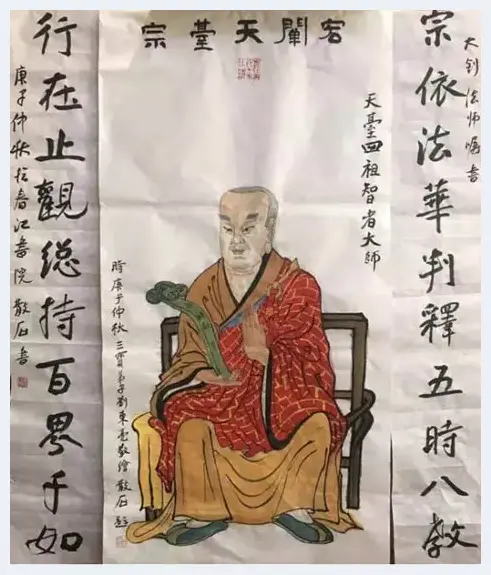 宏闡天臺宗
大钊法师嘱書
宗依法華判釋五時八教
天臺四祖智者大師
時庚子仲秋三寳弟子劉東亮敬繪 散石題
行在止觀総持百界千如
庚子仲秋於春江書院 散石書